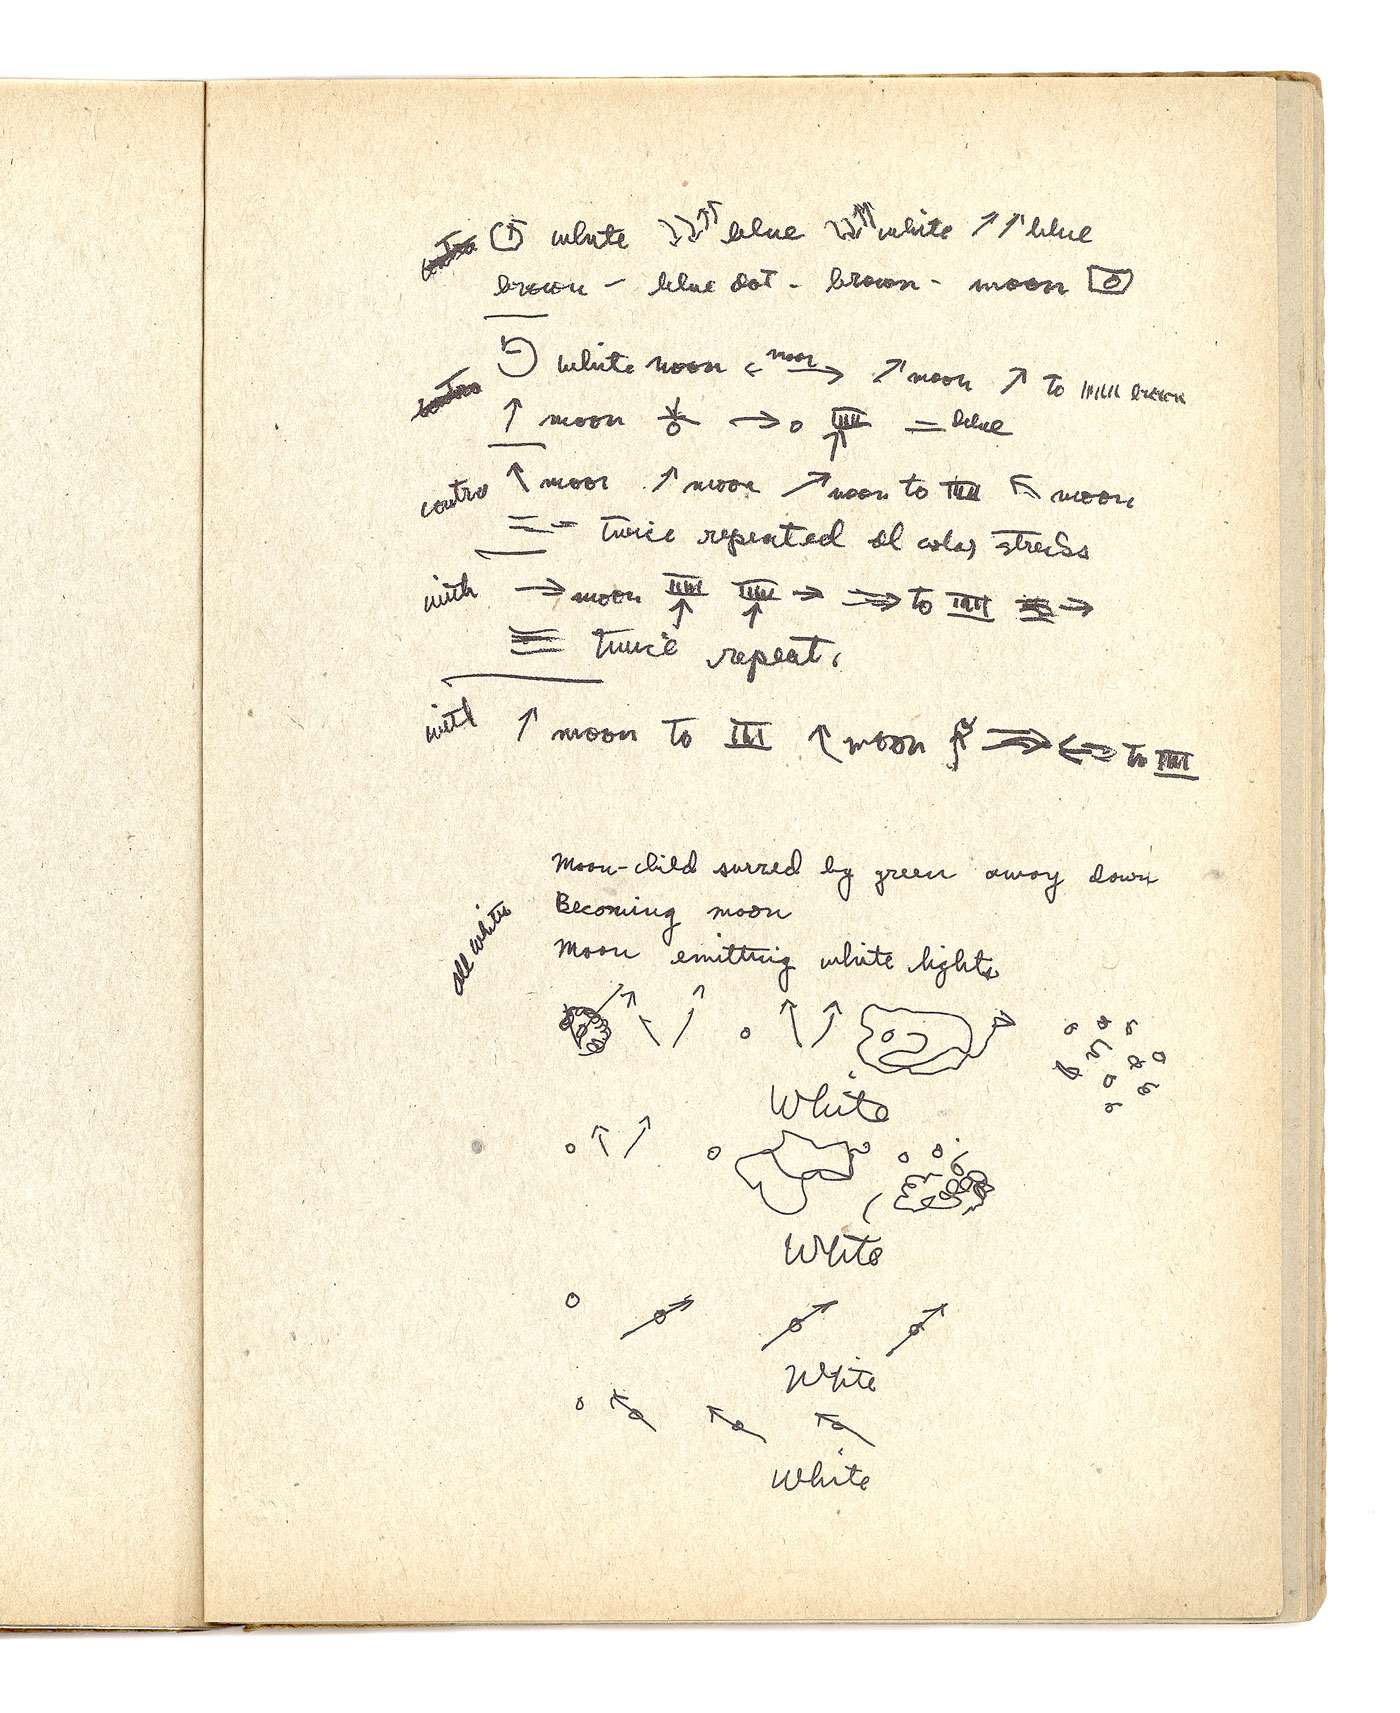 white blue white ↑↑ blue
brown - blue dot - brown - moon
white moon ← moon → ↗ moon ↗ to brown
↑ moon → o = blue
contra ↖ moon ↗ moon ↗ moon to IIII ↖ moon
= twice repeated
with → moon IIII IIII → ⇒ to IIII →
twice repeat.
with ↑ moon to III ↖ moon ⇒ to IIII
Moon-child surred by green away down
Becoming moon
all white
Moon emitting white lights
White
White
White
White